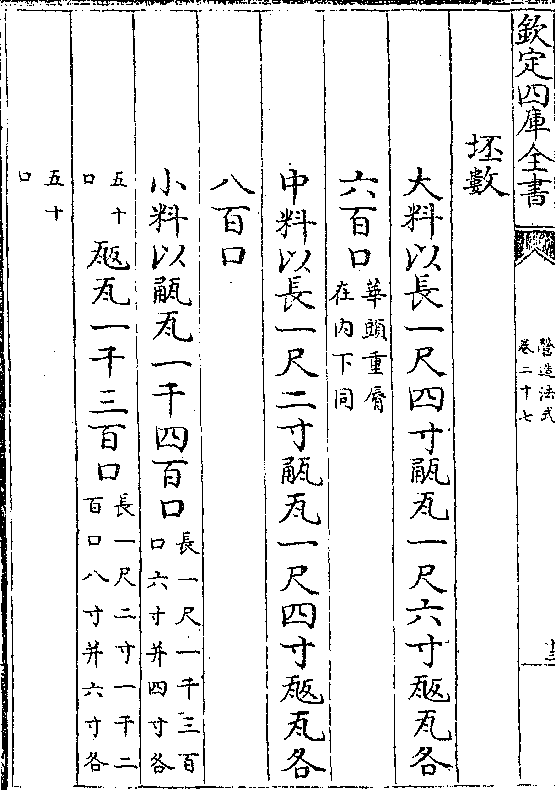 欽定四庫全書
營造法式
卷二十七
坯數
大料以長一尺四寸㼧瓦一尺六寸瓪瓦各
六百口華頭重脣在内下同
中料以長一尺二寸㼧瓦一尺四寸瓪瓦各
八百口
小料以㼧瓦一千四百口長一尺一千三百口六寸并四寸各
五十口瓪瓦一千三百口長一尺二寸一千二百口八寸并六寸各
五十口